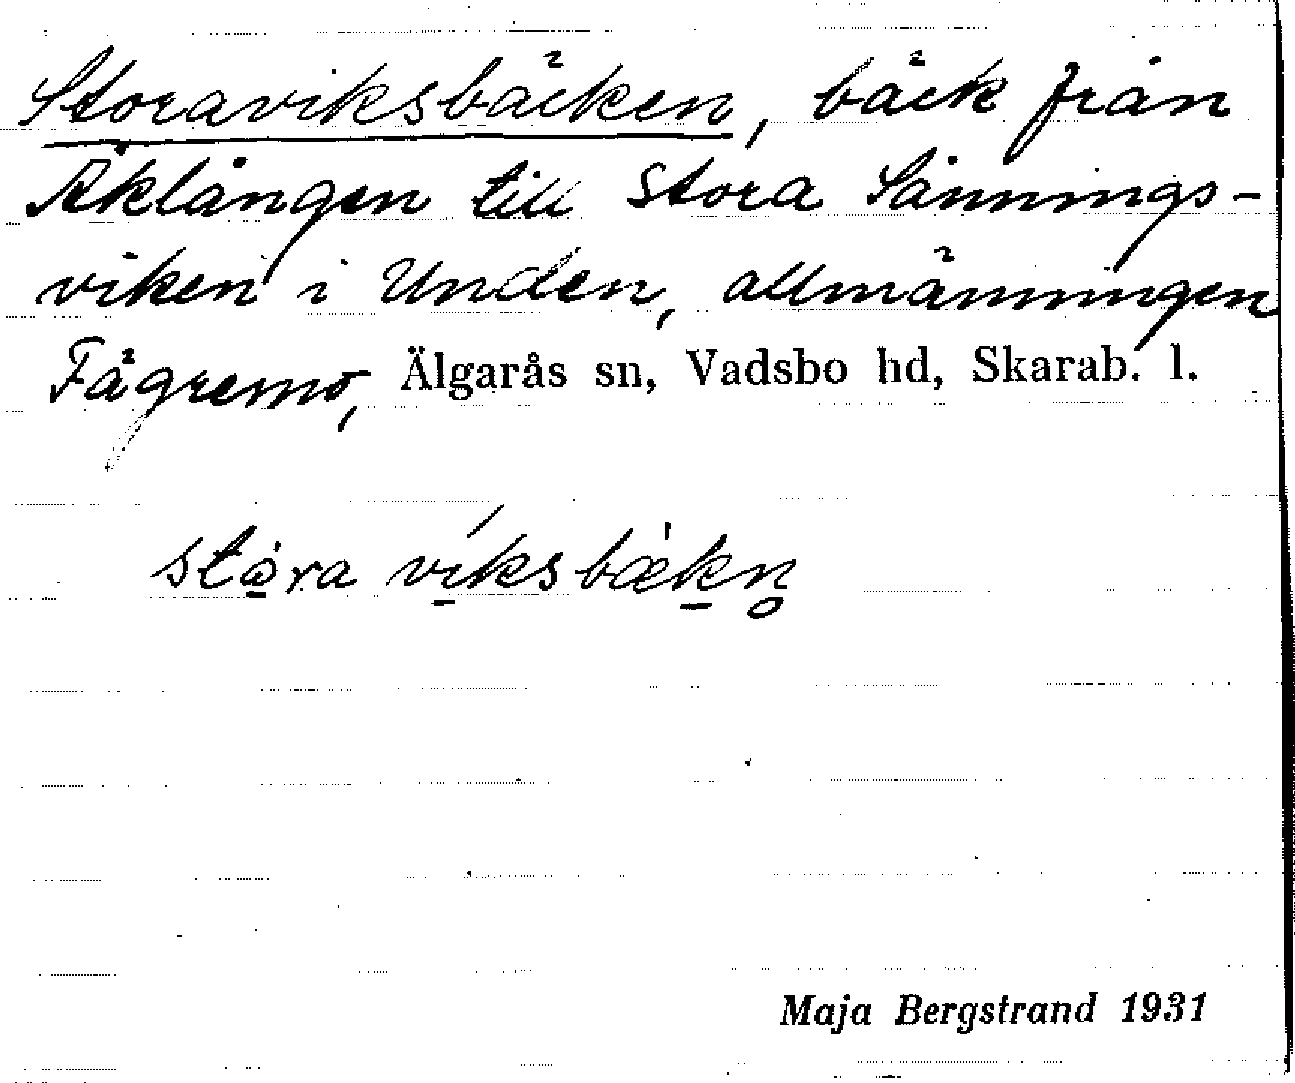 Storaviksbäcken, bäck från
Åklången till Stora Sännings-
viken i Unden, allmänningen
Fägremo, Älgarås sn, Vadsbo hd, Skarab. l.
Maja Bergstrand 1931